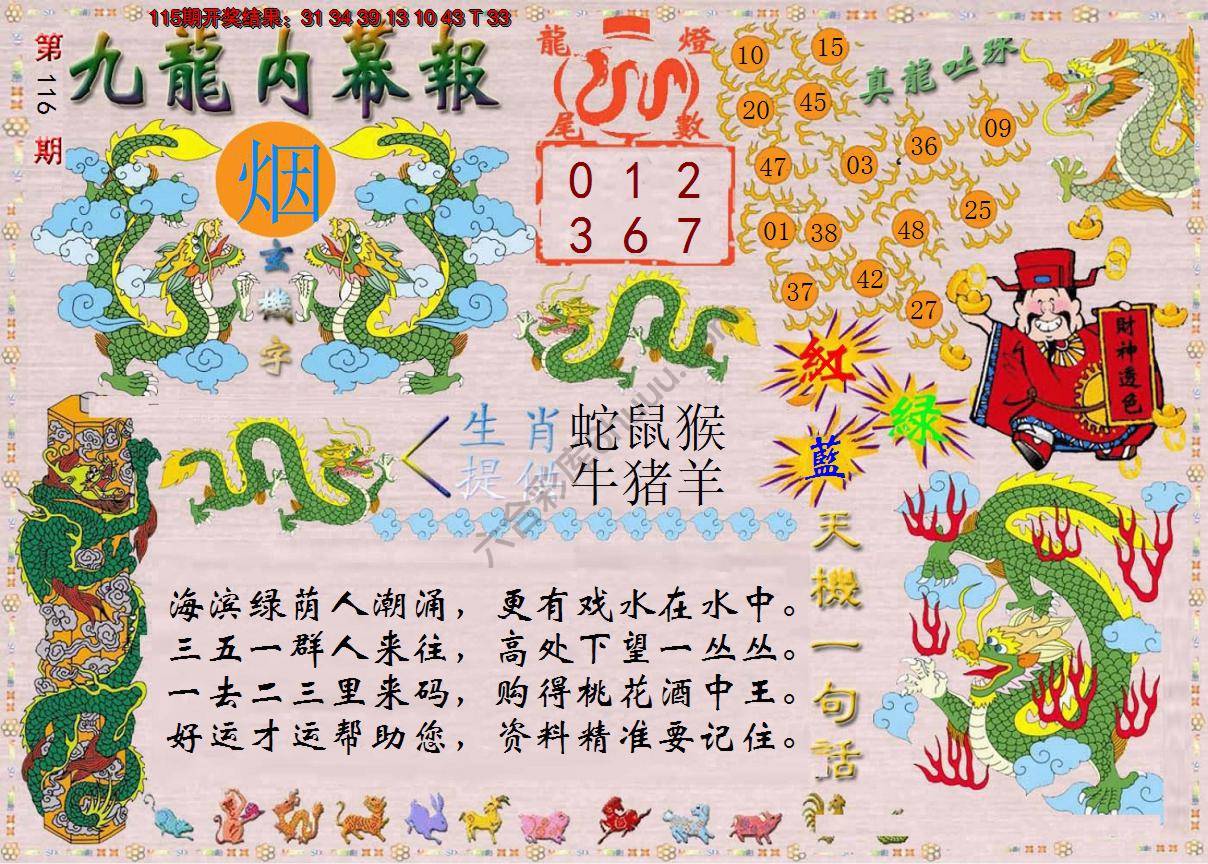 115期开奖结果：31 34 39 13 10 43 T 33
第
116
期
九龍内幕報
烟
玄
機
字
龍 燈
尾 數
0 1 2
3 6 7
真龍吐珠
10
15
20
45
47
03
36
09
01
38
48
25
37
42
27
財神透色
紅
綠
藍
生肖 蛇鼠猴
提供 牛猪羊
天機一句話
海滨绿荫人潮涌，更有戏水在水中。
三五一群人来往，高处下望一丛丛。
一去二三里来码，购得桃花酒中王。
好运才运帮助您，资料精准要记住。
六合彩库